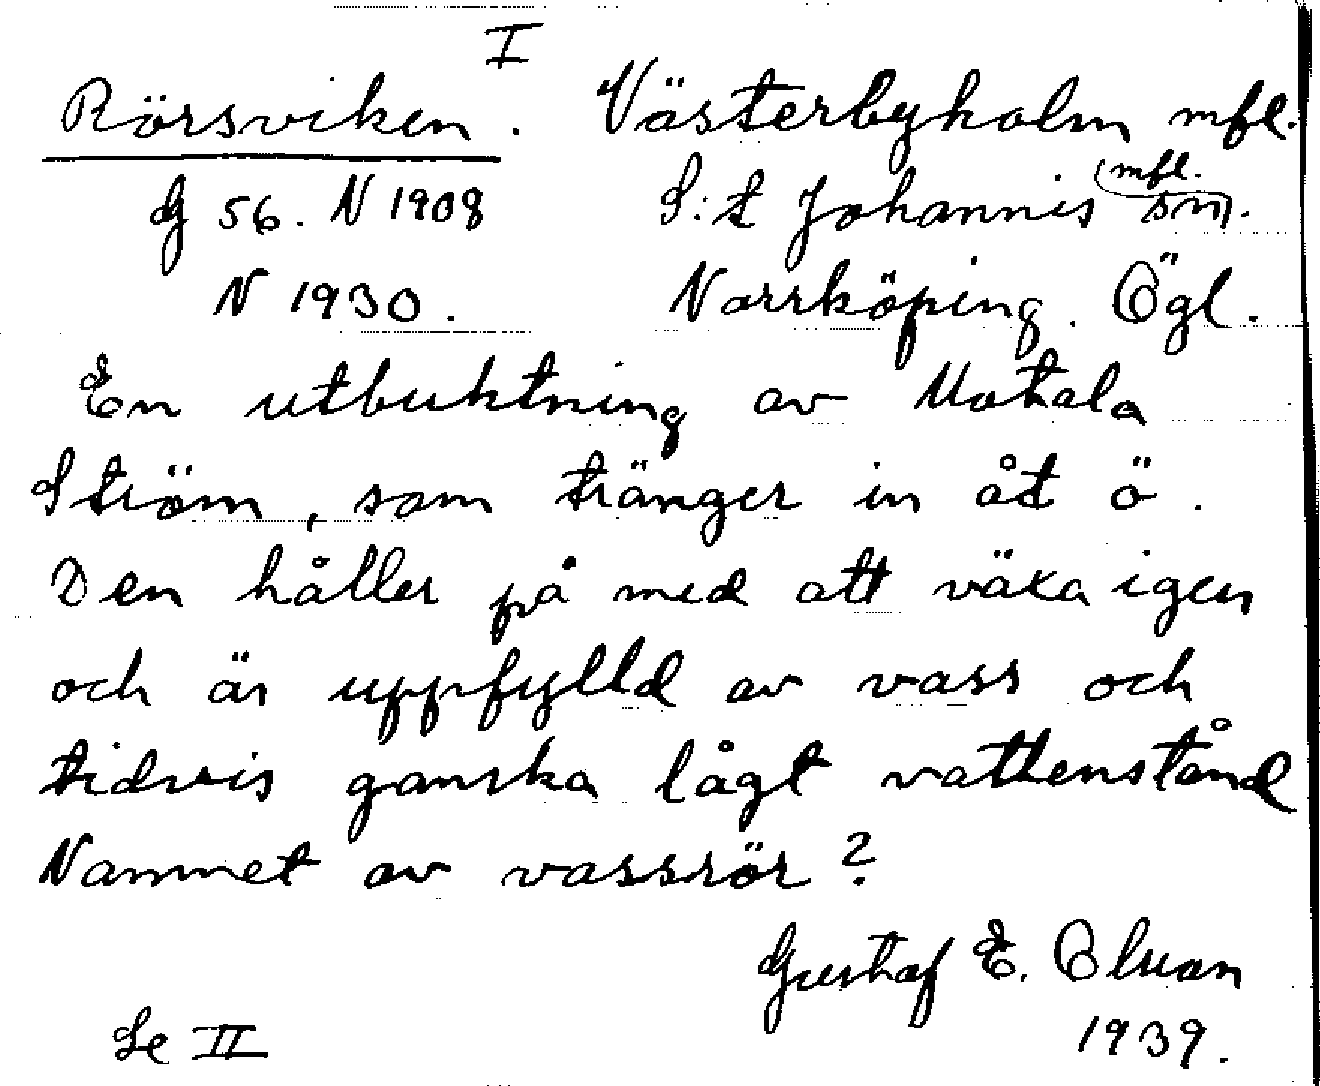 I
Rörsviken. Västerbyholm mfl.
G 56. N 1908 S:t Johannis sn. mfl.
N 1930. Norrköping. Ögl.
En utbuktning av Motala
Ström, som tränger in åt ö.
Den håller på med att växa igen
och är uppfylld av vass och
tidvis ganska lågt vattenstånd
Namnet av vassrör?
Gustaf E. Olson
1939.
Se II